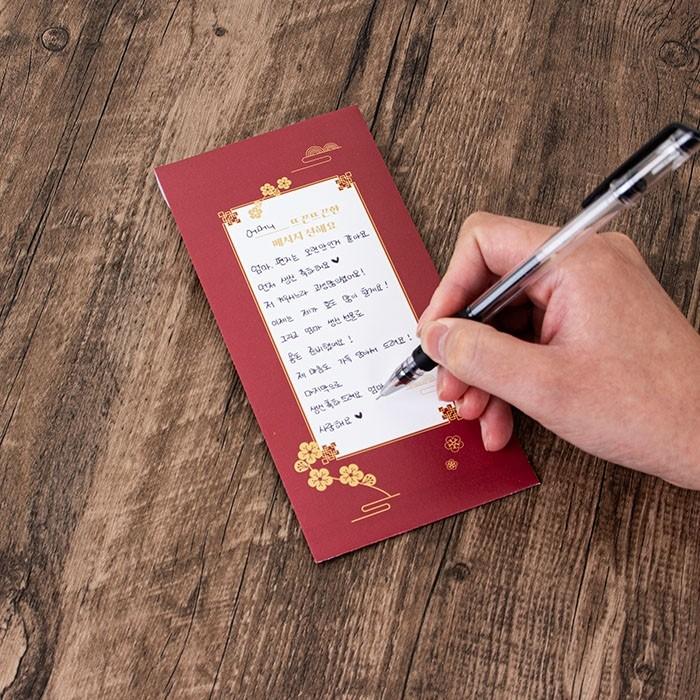 어머니 뜨끈뜨끈한
메시지 전해요
엄마. 편지는 오랜만인거 같아요
먼저 생신 축하해요 ♥
저 키우시느라 고생많이했어요!
이제는 제가 효도 많이 할게요!
그리고 엄마 생신 선물로
용돈 준비했어요!
제 마음도 가득 담아서 드려요!
마지막으로
생신축하드려요 엄마
사랑해요 ♥